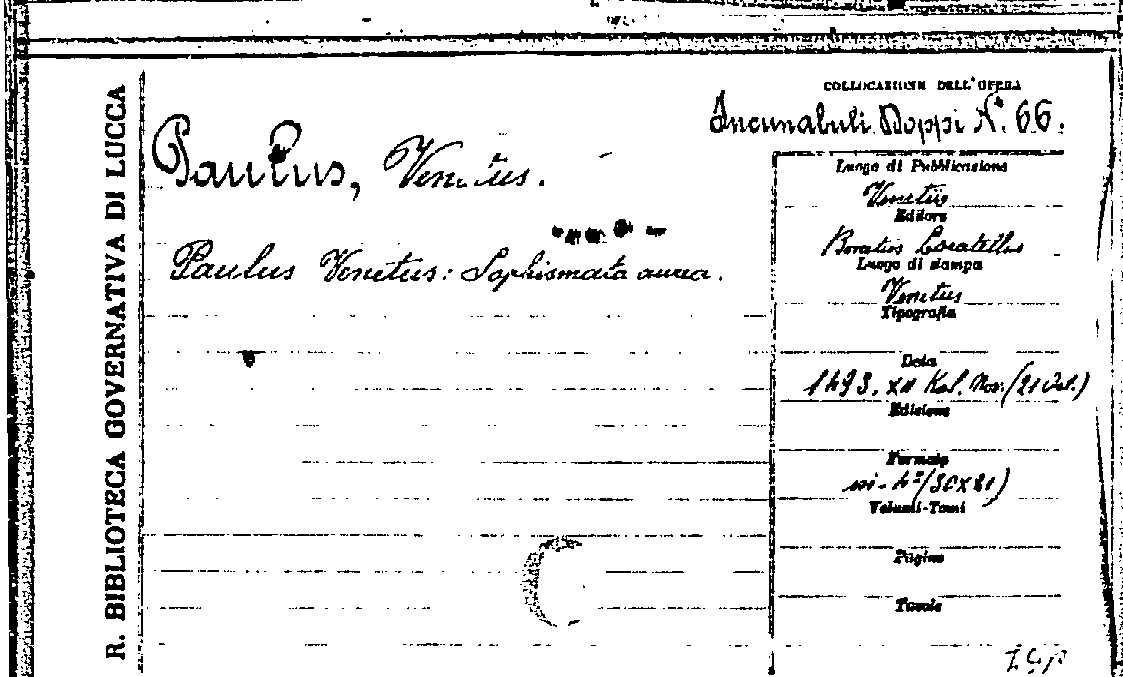 R. BIBLIOTECA GOVERNATIVA DI LUCCA
COLLOCAZIONE DELL'OPERA
Incunabuli Doppi N.° 66.
Paulus, Venetus.
Paulus Venetus: Sophismata aurea.
Luogo di Pubblicazione
Venetiis
Editore
Bonetus Locatellus
Luogo di stampa
Venetiis
Tipografia
Data
1493. XII Kal. Nov. (21 Oct.)
Edizione
Formato
in-4° (30x21)
Volumi-Tomi
Pagine
Tavole